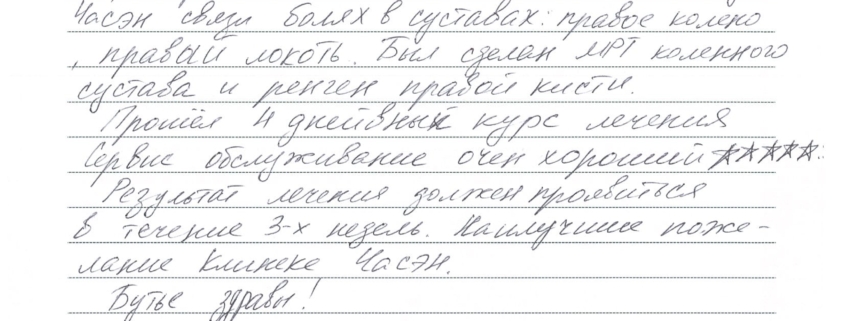 Часэн связи болях в суставах: правое колено
, правый локоть. Был сделан МРТ коленного
сустава и ренген правой кисти.
Прошёл 4 дневный курс лечения
Сервис обслуживание очен хороший ☆☆☆☆☆:
Результат лечения должен проявиться
в течение 3-х недель. Наилучшие поже-
лание Клинеке Часэн.
Бутье здравы!